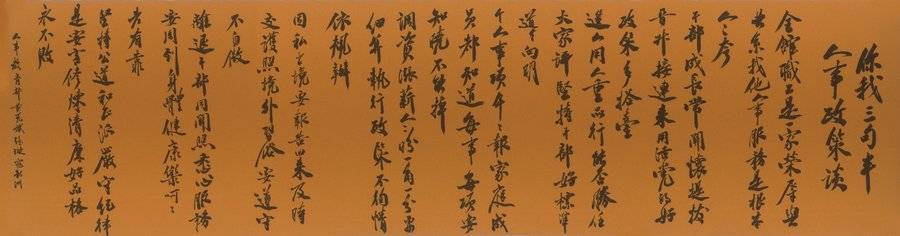 你我三句半
人事政策谈
全馆职工是一家荣辱与
共系我他人事服务是根本
人人夸
干部成长常关怀提拔
晋升接连来用活党的好
政策多搭台
选人用人重品行能否胜任
大家评坚持干部好标准
道道明
个人事项年年报家庭成
员都知道每事每项安
知晓不能掉
调资涨薪人人盼一角一分要
细算执行政策不徇情
依规办
因私出境要报告回来及时
交护照境外习俗要遵守
不自傲
离退干部同关照悉心服务
要周到身体健康乐呵呵
老有靠
坚持公道和正派严守纪律
是要害修炼清廉好品格
永不败